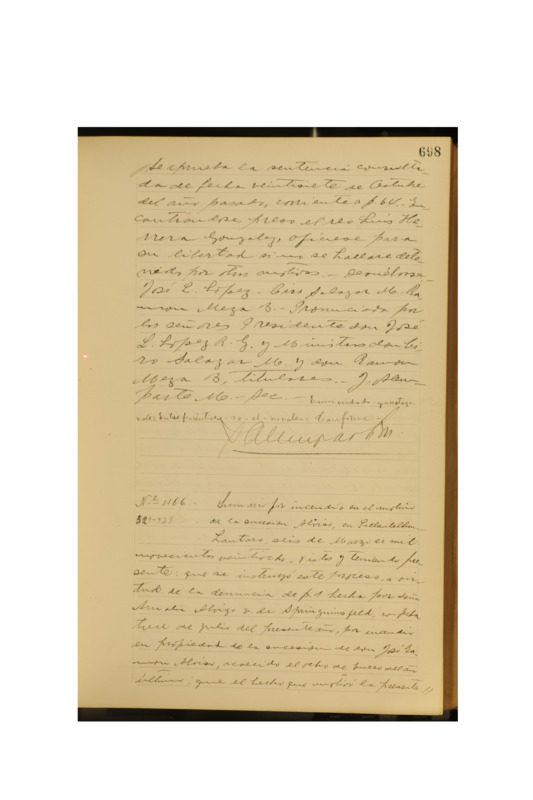 698
Se aprueba la sentencia consulta-
da de fecha veintisiete de Octubre
del año pasado, corriente a f 64. En
contrandose preso el reo Luis He-
rrera Gonzalez, ofíciese para
su libertad si no se hallare dete-
nido por otros motivos.- Devuélvase
José L. López.- Ciro Salazar M. Ra-
mon Meza B.- Pronunciada por
los señores Presidente don José
L. López R. G. y Ministros don Ci-
ro Salazar M. y don Ramon
Meza B, titulares.- J. Alem-
parte M.- Sec.- Enmendado
Conforme
N.º 1166. Sumario por incendio en el molino
de la sucesion Aloiso, en
Lautaro, seis de Marzo de mil
novecientos veintiocho, vistos y teniendo pre-
sente: que se instruyó este proceso, a vir-
tud de la denuncia de f 1 hecha por doña
Amalia v. de con fecha
trece de Julio del presente año, por incendio
en propiedad de la sucesion de don José Ra-
mon Aloiso, acaecido el ocho de del año
último; que el hecho que motivó la presente